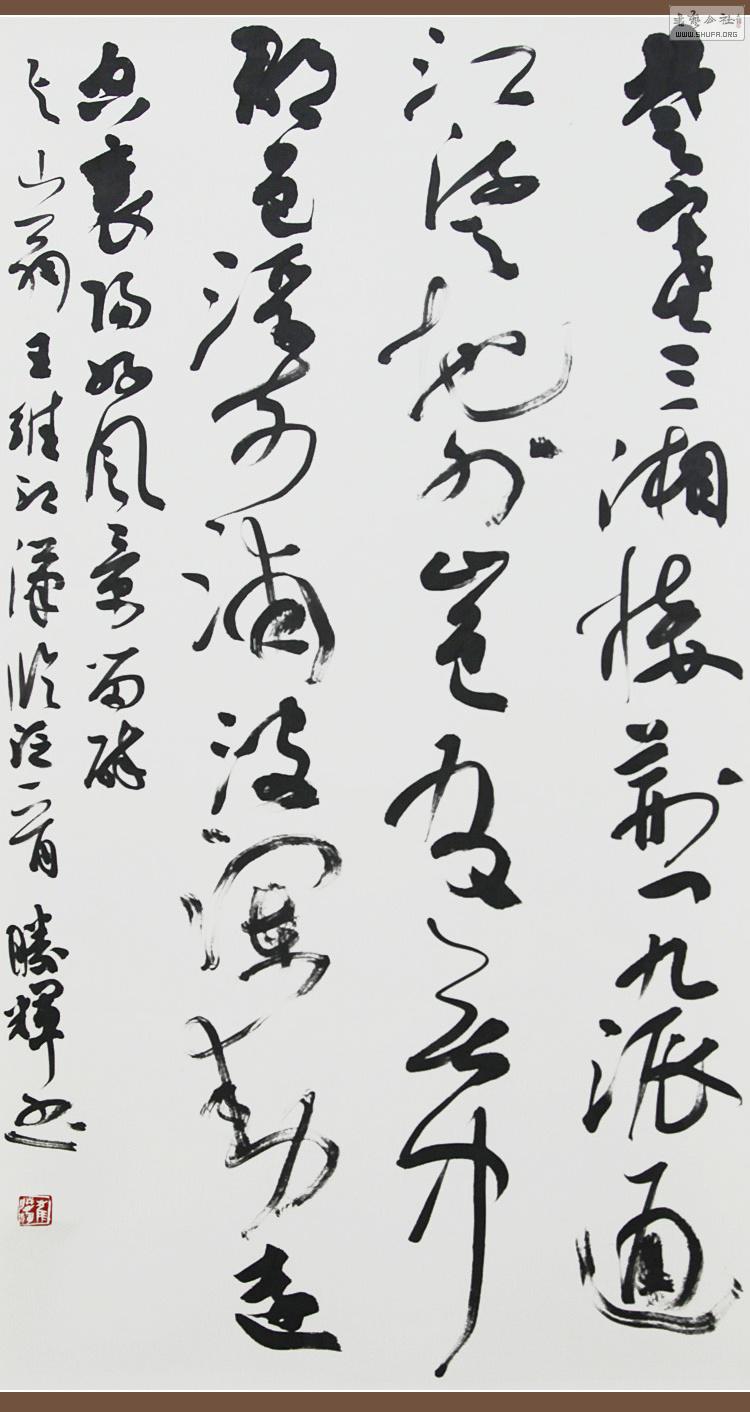 楚塞三湘接荆门九派通
江流天地外山色有无中
郡邑浮前浦波澜动远
空襄阳好风景留醉
与山翁王维江漢临泛一首 勝輝书
書藝公社
WWW.SHUFA.ORG